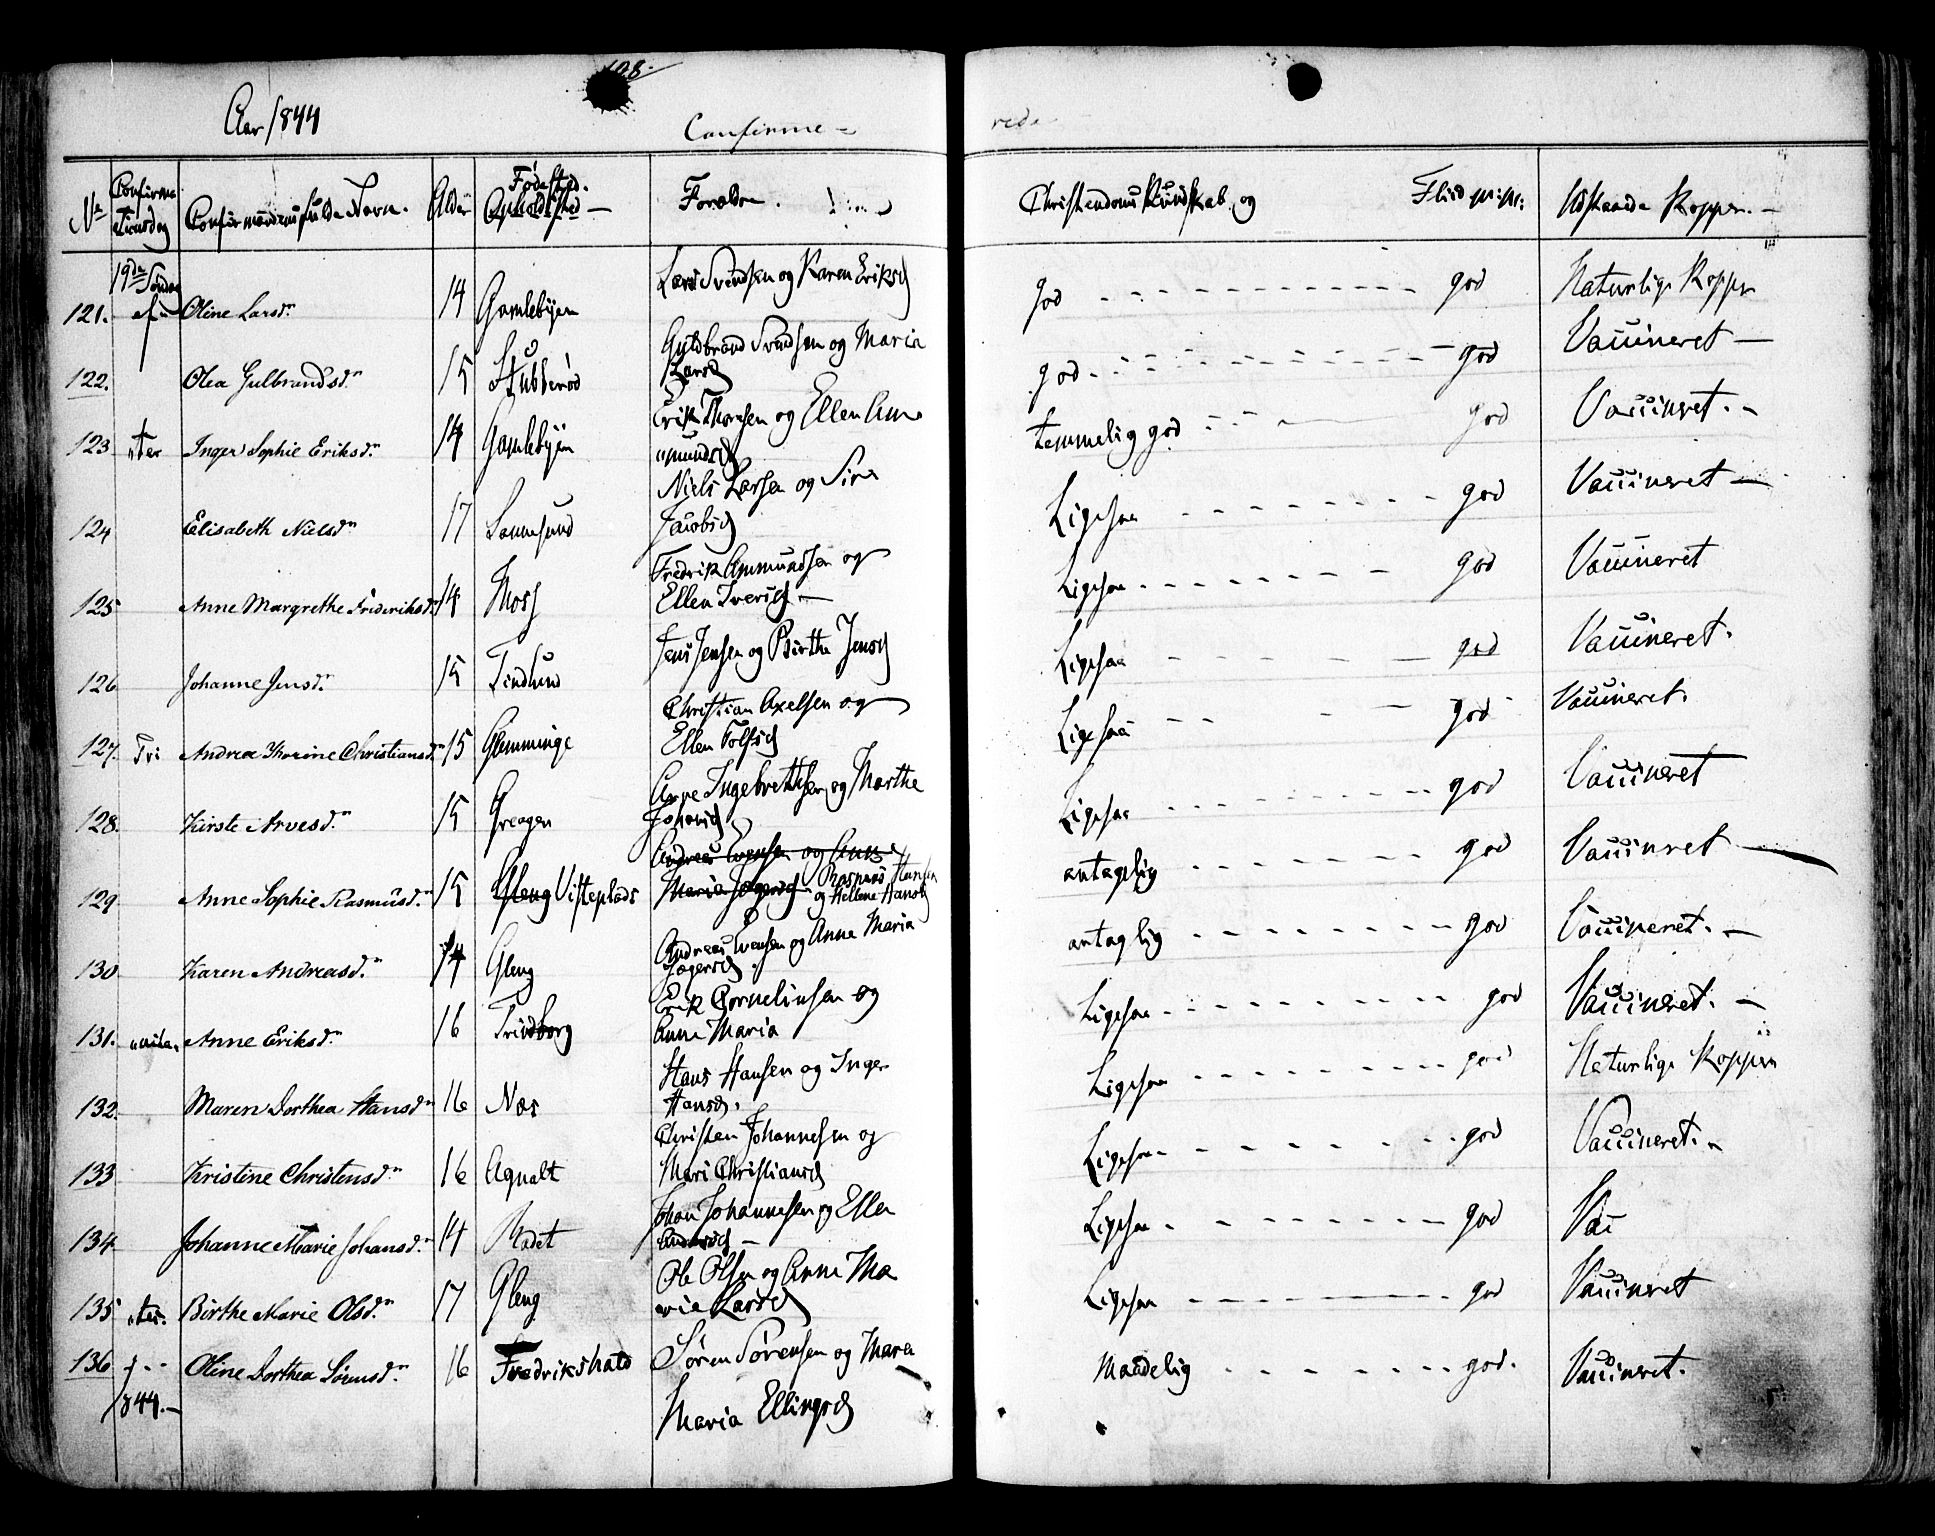 128.
Aar 1844
Confirme = rede
No Confirma tionsdag Confirmandens fulde Navn. Alder Fødested. Opholdssted Forældre. Christendoms Kundskab og Flid m: m: Udstaaede Kopper. —
19de Søndag
121. ef Oline Larsdn 14 Gamlebyen Lars Svendsen og Karen Eriksd god god Naturlige Kopper
122. Olea Gulbrandsdn 15 Stubberød Guldbrand Svendsen og Maria Larsd god god Vaccineret —
123 "ter Inger Sophie Eriksdn 14 Gamlebyen Erik Thoresen og Ellen Am "mundsd temmelig god god Vaccineret. —
124 Elisabeth Nielsdn 17 Sannesund Niels Larsen og Siri Jacobsd Ligesaa god Vaccineret —
125 Anne Margrethe Frideriksdn 14 Moss Fredrik Ammundsen og Ellen Iversd — Ligesaa god Vaccineret
126 Johanne Jensdn 15 Tindlund Jens Jensen og Birthe Jensd Ligesaa god Vaccineret.
127. Tri Andrea Thorine Christiansdn 15 Glemminge Christian Axelsen og Ellen Tolfsd Ligesaa god Vaccineret.
128. Kirste Arvesdn 15 Greagen Arve Ingebrethsen og Marthe Johansd Ligesaa god Vaccineret
129 Anne Sophie Rasmusdn 15 Gleng Visteplads Andreas Evensen og Anne Maria Jøgersd Rasmus Hansen og Hellene Hansd antagelig god Vaccineret —
130 Karen Andreasdn 14 Gleng Andreas Evensen og Anne Maria Jøgersd antaglig god Vaccineret. —
131. "nita. Anne Eriksdn 16 Trindborg Erik Cornelinsen og Anne Maria Ligesaa god Vaccineret. —
132. Maren Dorthea Hansdn 16 Nes Hans Hansen og Inger Hansd. Ligesaa god Naturlige Kopper
133 Kristine Christensdn 16 Agnalt Christen Johannesen og Mari Christiansd Ligesaa god Vaccineret. —
134 Johanne Marie Johansdn 14 Rødet Johan Johannesen og Ellen Andersd — Ligesaa god Vacc
135 "tis. Birthe Marie Olsdn 17 Gleng Ole Olsen og Anne Ma "rie Larsd Ligesaa god Vaccineret
136 Oline Dorthea Sørensdn 16 Fredrikshald Søren Sørensen og Maren Maria Ellingsd Maadelig god. Vaccineret.
1844. —